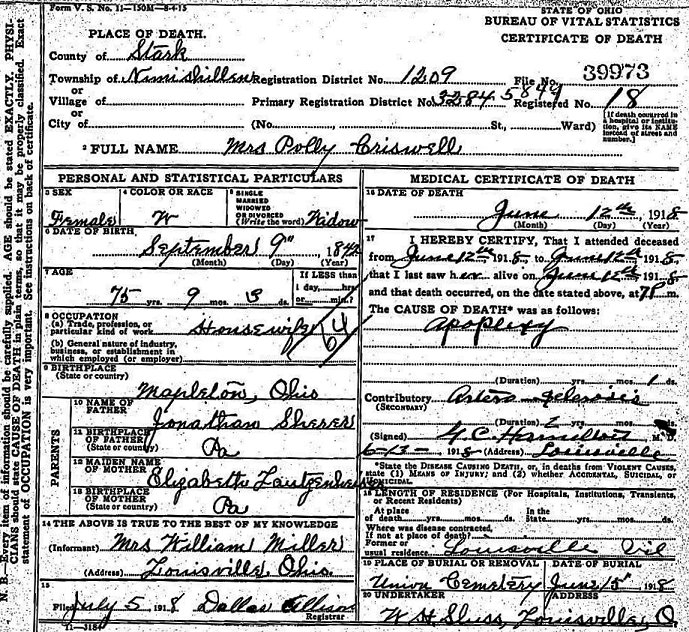 Form V. S. No. 11—150M—8-4-15
STATE OF OHIO
BUREAU OF VITAL STATISTICS
CERTIFICATE OF DEATH
PLACE OF DEATH.
County of Stark
Township of Nimishillen Registration District No. 1209 File No. 39973
or
Village of Primary Registration District No. 3284 5844 Registered No. 18
or
City of (No. St., Ward) [If death occurred in a hospital or institution, give its NAME instead of street and number.]
2 FULL NAME Mrs Polly Criswell
PERSONAL AND STATISTICAL PARTICULARS
3 SEX Female
4 COLOR OR RACE W
5 SINGLE MARRIED WIDOWED OR DIVORCED (Write the word) Widow
6 DATE OF BIRTH,
September 9" 1842
(Month) (Day) (Year)
7 AGE
75 yrs. 9 mos. 3 ds.
If LESS than
1 day, hrs.
or min.?
8 OCCUPATION
(a) Trade, profession, or
particular kind of work Housewife
(b) General nature of industry,
business, or establishment in
which employed (or employer)
9 BIRTHPLACE
(State or country)
Mapleton, Ohio
PARENTS
10 NAME OF
FATHER Jonathan Sherer
11 BIRTHPLACE
OF FATHER
(State or country) Pa
12 MAIDEN NAME
OF MOTHER Elizabeth
13 BIRTHPLACE
OF MOTHER
(State or country) Pa
14 THE ABOVE IS TRUE TO THE BEST OF MY KNOWLEDGE
(Informant) Mrs William Miller
(Address) Louisville, Ohio.
15
Filed July 5 1918 Dallas Allison
Registrar
11-3184
MEDICAL CERTIFICATE OF DEATH
16 DATE OF DEATH
June 12th, 1918
(Month) (Day) (Year)
17 I HEREBY CERTIFY, That I attended deceased
from June 12th 1918 to June 12th 1918
that I last saw her alive on June 12th 1918
and that death occurred, on the date stated above, at 7P m.
The CAUSE OF DEATH* was as follows:
Apoplexy
(Duration) yrs. mos. 1 ds.
Contributory Arterio Sclerosis
(SECONDARY)
(Duration) 2 yrs. mos. ds.
(Signed) M. D.
6-13- 1918 (Address) Louisville
*State the DISEASE CAUSING DEATH, or, in deaths from VIOLENT CAUSES,
state (1) MEANS OF INJURY; and (2) whether ACCIDENTAL, SUICIDAL or
HOMICIDAL.
18 LENGTH OF RESIDENCE (For Hospitals, Institutions, Transients,
or Recent Residents)
At place In the
of death yrs. mos. ds. State yrs. mos. ds.
Where was disease contracted,
If not at place of death?
Former or
usual residence Louisville Vil
19 PLACE OF BURIAL OR REMOVAL DATE OF BURIAL
Union Cemetery June 15" 1918
20 UNDERTAKER ADDRESS
W H Sluss, Louisville, O.
N. B. Every item of information should be carefully supplied. AGE should be stated EXACTLY. PHYSI-
CIANS should state CAUSE OF DEATH in plain terms, so that it may be properly classified. Exact
statement of OCCUPATION is very important. See instructions on back of certificate.